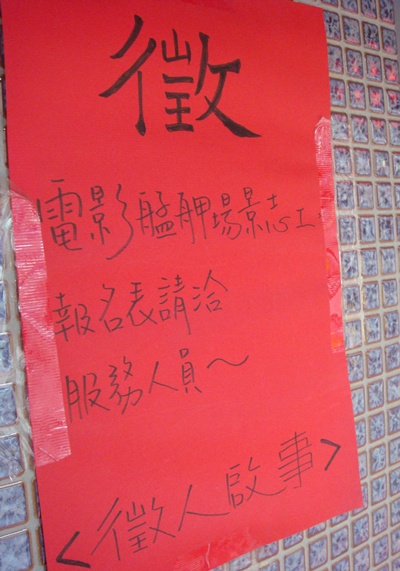 徵
電影艋舺場景志工
報名表請洽
服務人員～
<徵人啟事>